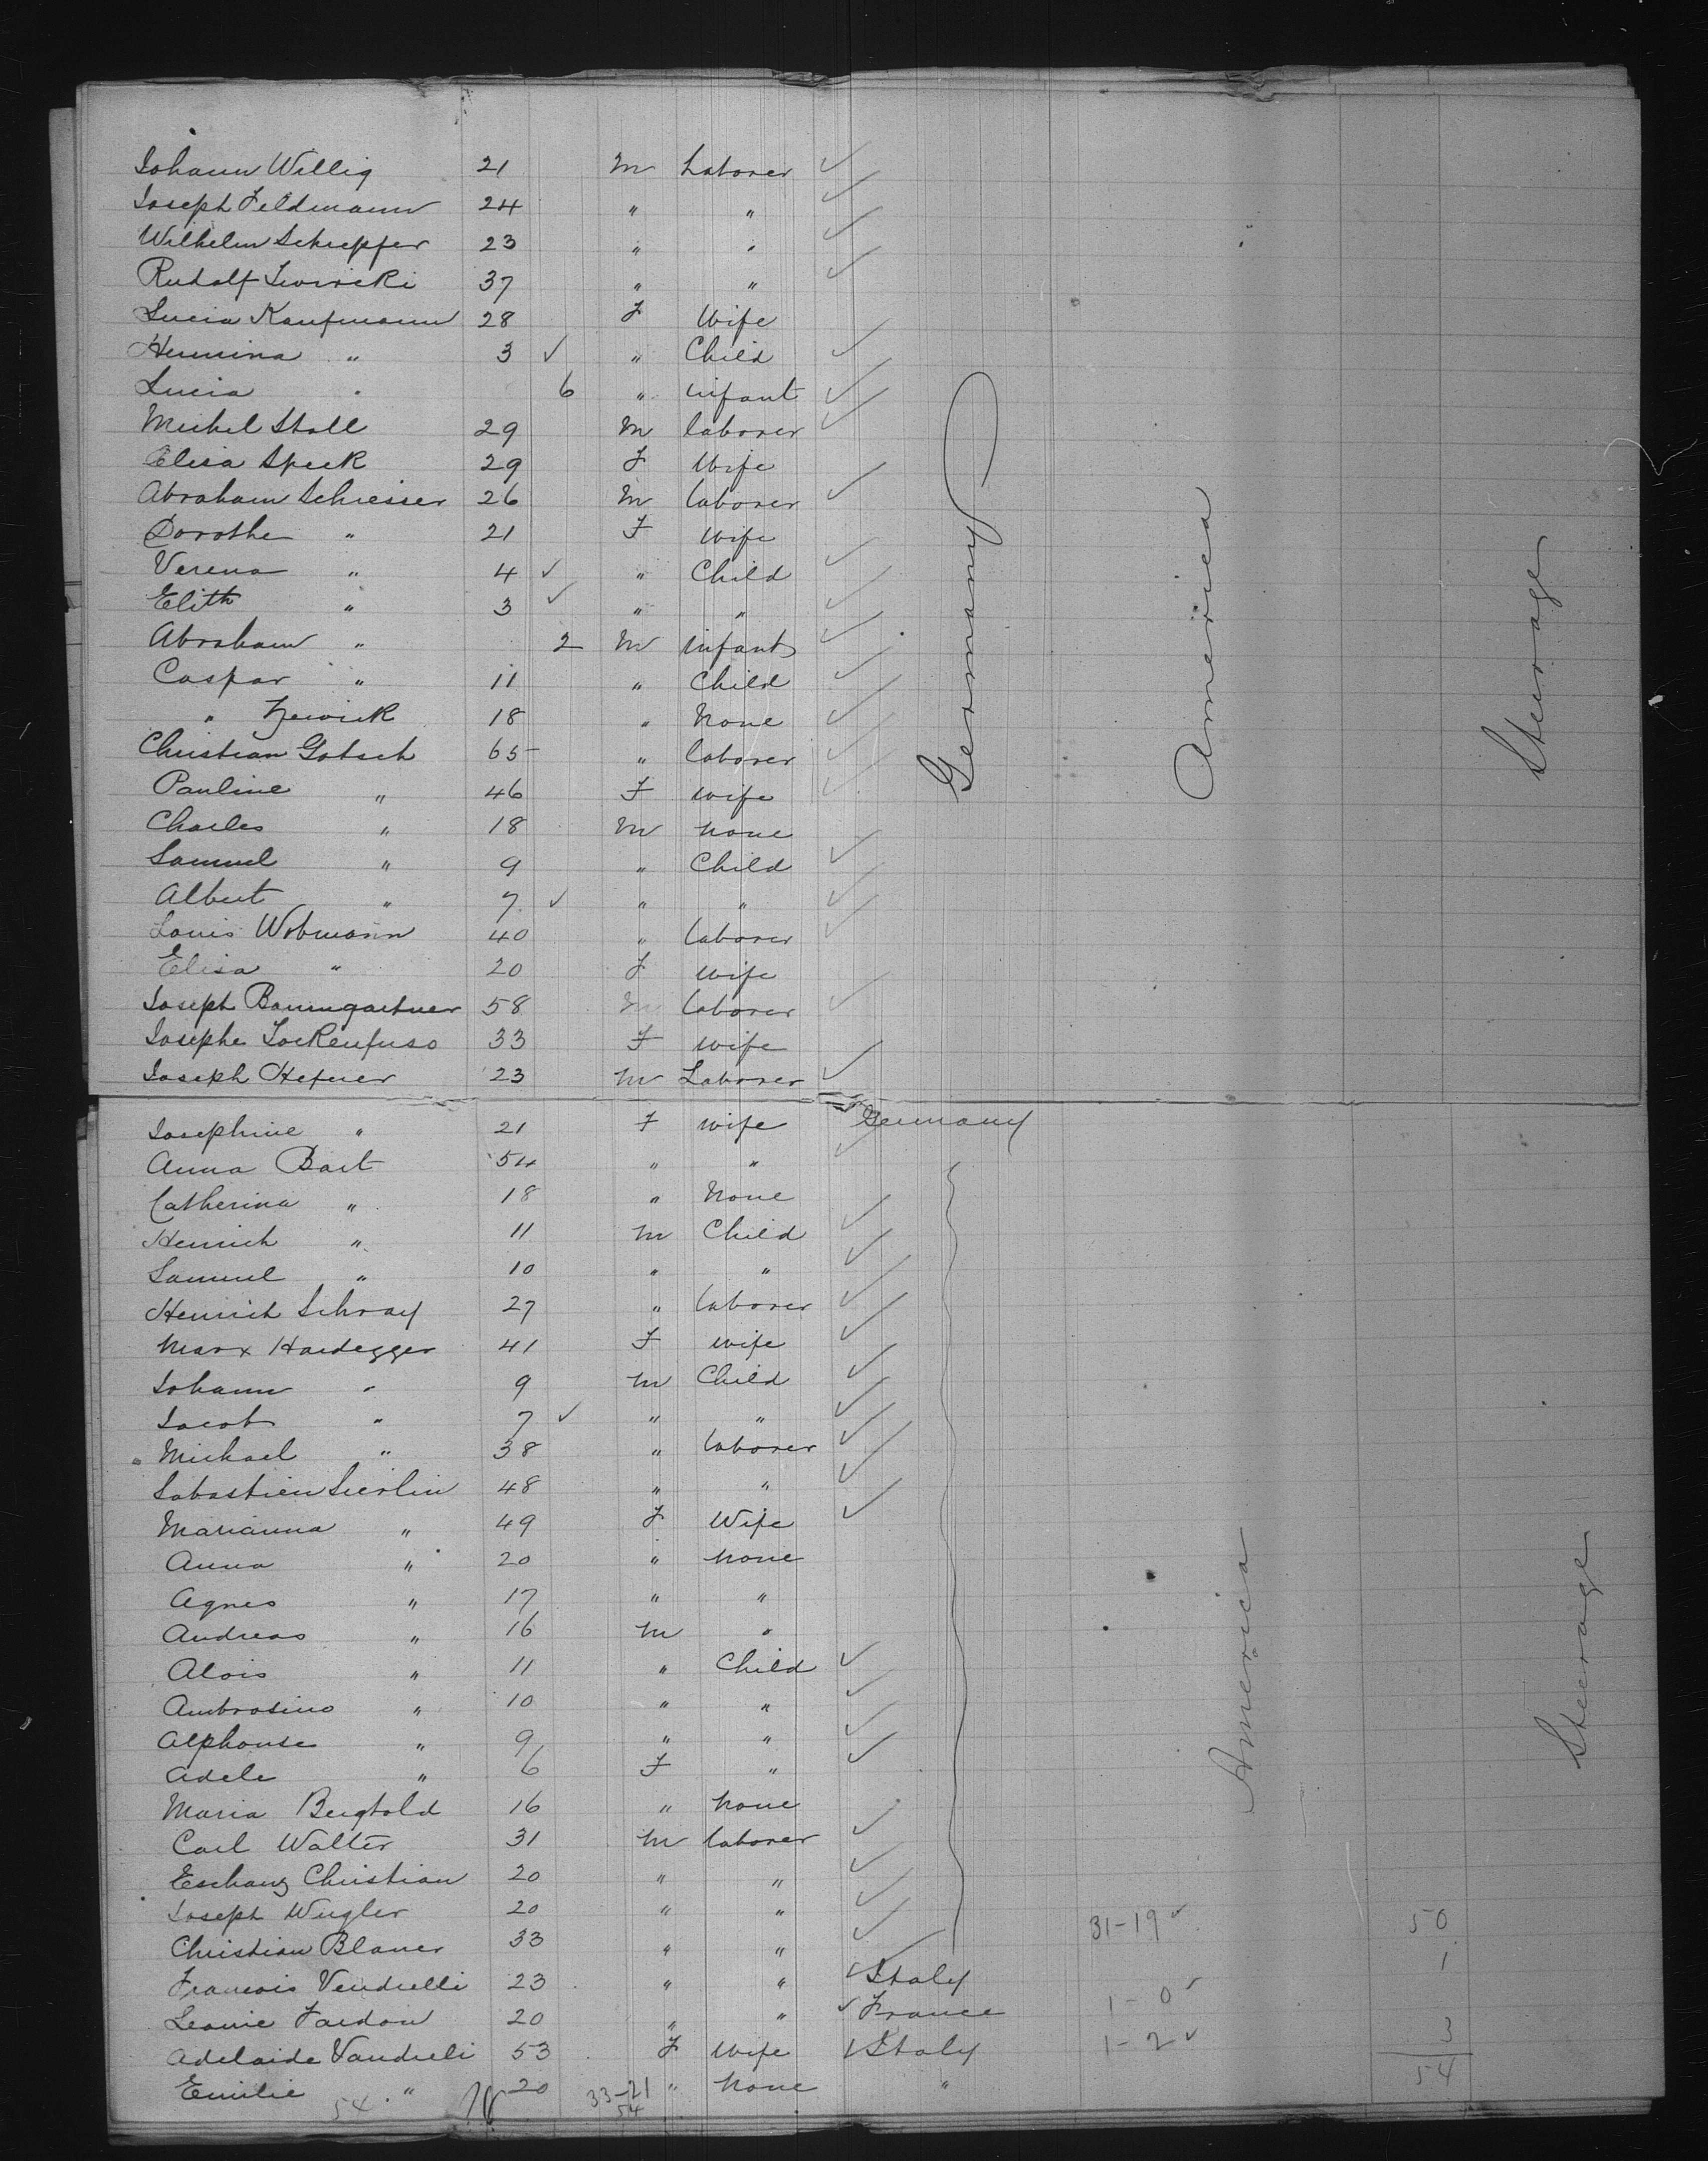 Johann Willig 21 m Laborer ✓
Joseph Feldmann 24 " " ✓
Wilhelm Schepfer 23 " " ✓
Rudolf 37 " " ✓
Lucia Kaufmann 28 F Wife
Hermina " 3 ✓ " Child ✓
Lucia " 6 " infant ✓
Michel Stoll 29 m laborer ✓
Elisa Speck 29 F Wife
Abraham Schiesser 26 m laborer ✓
Dorothe " 21 F Wife
Verena " 4 ✓ " Child ✓
Elith " 3 ✓ " " ✓
Abraham " 2 m infant ✓
Caspar " 11 " Child ✓
" 18 " None ✓
Christian Gotsch 65 " laborer ✓
Pauline " 46 F wife ✓
Charles " 18 m none
Samuel " 9 " Child ✓
Albert " 7 ✓ " " ✓
Louis Wobmann 40 " laborer ✓
Elisa " 20 F wife
Joseph Baumgartner 58 m laborer ✓
Josephe 33 F wife
Joseph Hefner 23 m Laborer ✓
Germany
America
Steerage
Josephine " 21 F wife Germany
Anna Bart 54 " " ✓
Catherina " 18 " None
Heinrich " 11 m Child ✓
Samuel " 10 " " ✓
Heinrich Schray 27 " laborer ✓
Marx Hardegger 41 F wife ✓
Johann " 9 m Child ✓
Jacob " 7 ✓ " " ✓
Michael " 38 " laborer ✓
Sabastien Sierlin 48 " " ✓
Marianna " 49 F Wife ✓
Anna " 20 " none
Agnes " 17 " "
Andreas " 16 m "
Alois " 11 " Child ✓
Ambrosius " 10 " " ✓
Alphonse " 9 " " ✓
Adele " 6 F " ✓
Maria Bergtold 16 " none
Carl Walter 31 m laborer ✓
Eschanz Christian 20 " " ✓
Joseph Wugler 20 " " ✓ 31-19 ✓ 50
Christian Blaner 33 " " ✓ 1
Francois Vendrelli 23 " " ✓ Italy
Leonie Fardon 20 " " ✓ France 1-0 ✓
Adelaide Vandreli 53 F wife ✓ Italy 1-2 ✓ 3
Emilie " 20 " none " 54
54 33-21
54
America
Steerage